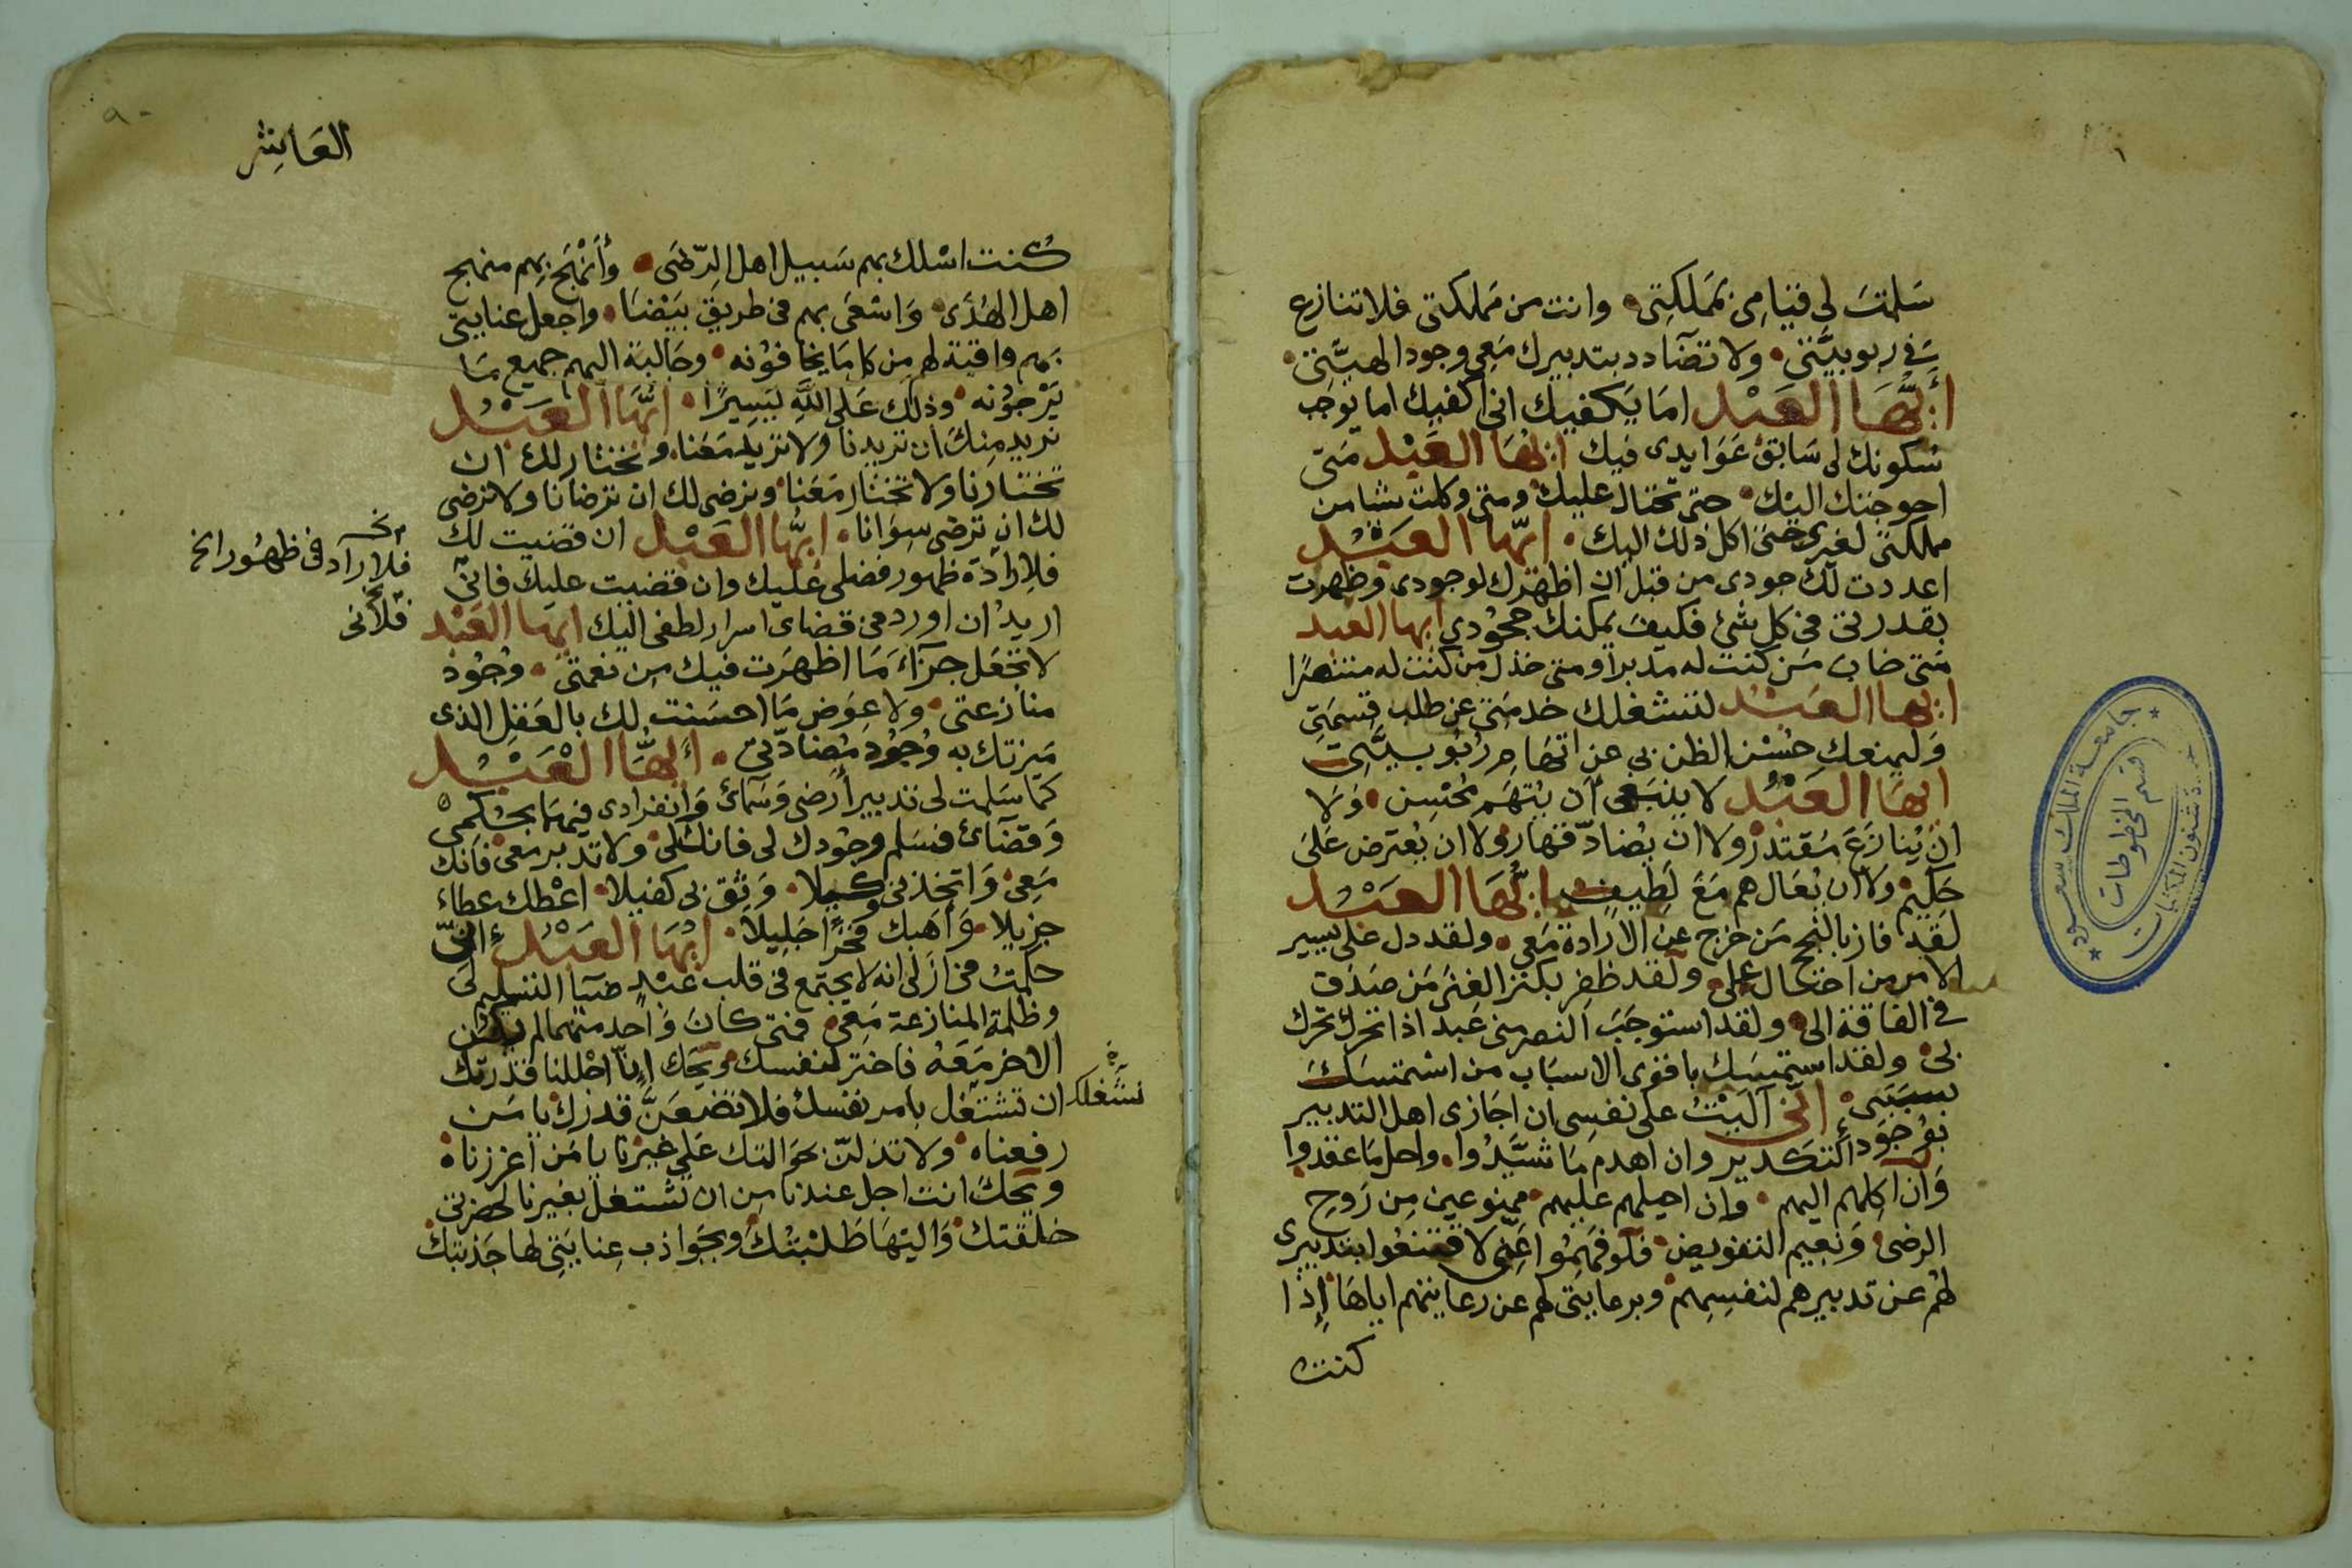 سَلمتَ لى قيامى بمَملكِتى وانت من مَملكتى فلا تنازع
فى ربوبيَّتى ولا تضآدد بتدبيرك مَعى وجود الهيَّتى
أيُّهَا العَبْد امَا يَكفيك انى اكفيك اما يوجب
سُكونك لى سَابق عَوَايدى فيك ايُّهَا العَبْد مَتى
احوجتك اليْك حتى تحتال عليك ومتى وكلت شيا من
مملكتى لغيرى حتى اكل ذلك اليك ايّها العَبْد
اعددت لك جودى من قبل ان اظهرك لوجودى وظهرت
بقدرتى فى كل شئ فكيف يمكنك جحُودى ايها العبد
مَتى خاب مَن كنت له مدبرا ومتى خذل من كنت له منتصرًا
ايها العَبْد لتشغلك خدمَتى عن طلب قِسمَتى
وَليمنعك حُسْن الظن بى عن اتهَامِ رُبُوبيَّتى
ايهَا العَبْدُ لا ينبَغى أن يُتهَم مُحْسِن وَلا
ان يُنازَعَ مُقتدرٌ ولا ان يُضادّ قهار ولا ان يُعترض عَلىَ
حَكيم ولا ان يُعَال هم مَعَ لَطيف ايُّهَا العَبْد
لَقد فاز بالنجح مَن خرج عن الارادة مَعى ولقد دل على يسير
الامر من احتال على ولقد ظفِر بكنز الغِنَى مَن صَدَق
فى الفاقة الى ولقد استوجَبَ النصر منى عَبد اذا تحرك تحرك
بى ولقد استمسَك باقوى الاسبَاب من استمسَكَ
بسبَبى إنى آليْتُ على نفسِى ان اجَازى اهل التدبير
بوُجوُد التكدير وان اهدم مَا شيَّدُوا واحل مَا عقدوا
وَان اكلهم اليهم وان احيلهم عليهم ممنوعين مِن رَوحِ
الرضى وَنعِيم التفويض فلَو فَهِمُوا عَنِّى لاقتنعُوا بتدبيرى
لهُم عن تدبيرهم لنفسِهِم وبرعايَتى لهم عن رعايتهم اياهَا إذا
كنت
العَاشِر
كُنت اسْلك بهم سَبيل اهل الرّضَى وأَنْهَج بهم منهج
اهل الهُدَى وَاسْعَى بهم فى طريق بَيْضَا واجعل عنايتى
بهم واقية لهم مِن كل مَا يخافوُنه وجَالبة اليهم جميع مَا
يَرْجوُنه وذلك عَلى اللَّهِ يَسِيرًا ايُّهَا العَبْد
نريد مِنكَ ان تريدنا ولا تريد مَعَنا ونختار لك ان
تختارنا ولا تختار مَعَنا ونرضى لك ان ترضانا ولا نرضى
لك ان ترضى سِوَانا ايُّها العَبْد ان قضيت لك
فلإرادَة ظهور فضلى عَليك وان قضيت عليك فانى
اريد ان اورد فى قضاى اسرار لطفى اليك ايها العَبْد
لا تجعَل جزآءَ مَا اظهَرت فيك مِن نعمَتى وُجُود
منازعتى ولا عِوَض مَا احسَنت لك بالعَقلِ الذى
مَيزتك به وُجُود مُضادّتى أيهُّا الْعَبْد
كمَا سَلمت لى تدبير أرضى وَسَمائ وَانفرادى فيهمَا بحُكمى
وَقضآئ فسَلم وجُودك لى فانك لى ولا تدبر معى فانك
مَعِى وَاتخذنى وكيلا وَثِق بى كفيلا اعْطك عطاءً
جزيلا وَأهَبك فخْرًا جَليلا ايُّهَا العَبْد إنى
حكَمتُ فى ازَلى انه لا يجتمع فى قلب عَبْدٍ ضيَا التسليم لى
وظلمة المنازعة مَعى فمتى كانَ وَاحد منهمَا لم يكن
الاخر مَعَه فاختر لنفسك ويحَك إنا اجْللنا قدْرَك
ان تشتغل بامر نفسك فلا تضعَنَّ قدرك يا مَن
رفعناه ولا تذلنّ بحَوالتك عَلى غيرنا يا مَن اعززناه
ويحَك انت اجل عندنا مِن ان تشتغل بغيرنا لحضرتى
خلقتك وَاليهَا طَلبْتُك وبجَواذب عِنايَتِى لها جَذبتك
فلإرادتى ظهُور الخ
فلأنى
نشَغلك
جامعة الملك سعود
قسم المخطوطات
عمادة شئون المكتبات